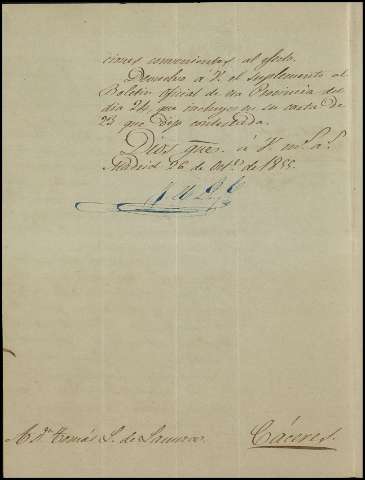 ciones convenientes al efecto.
Devuelvo a V. el Suplemento al
Boletin oficial de esa Provincia del
dia 24 que incluye en su carta de
23 que dejo contestada.
Dios gue. á V. ms. as.
Madrid 26 de Oct.e de 1855.
A Dn. Tomás S. de
Cáceres.